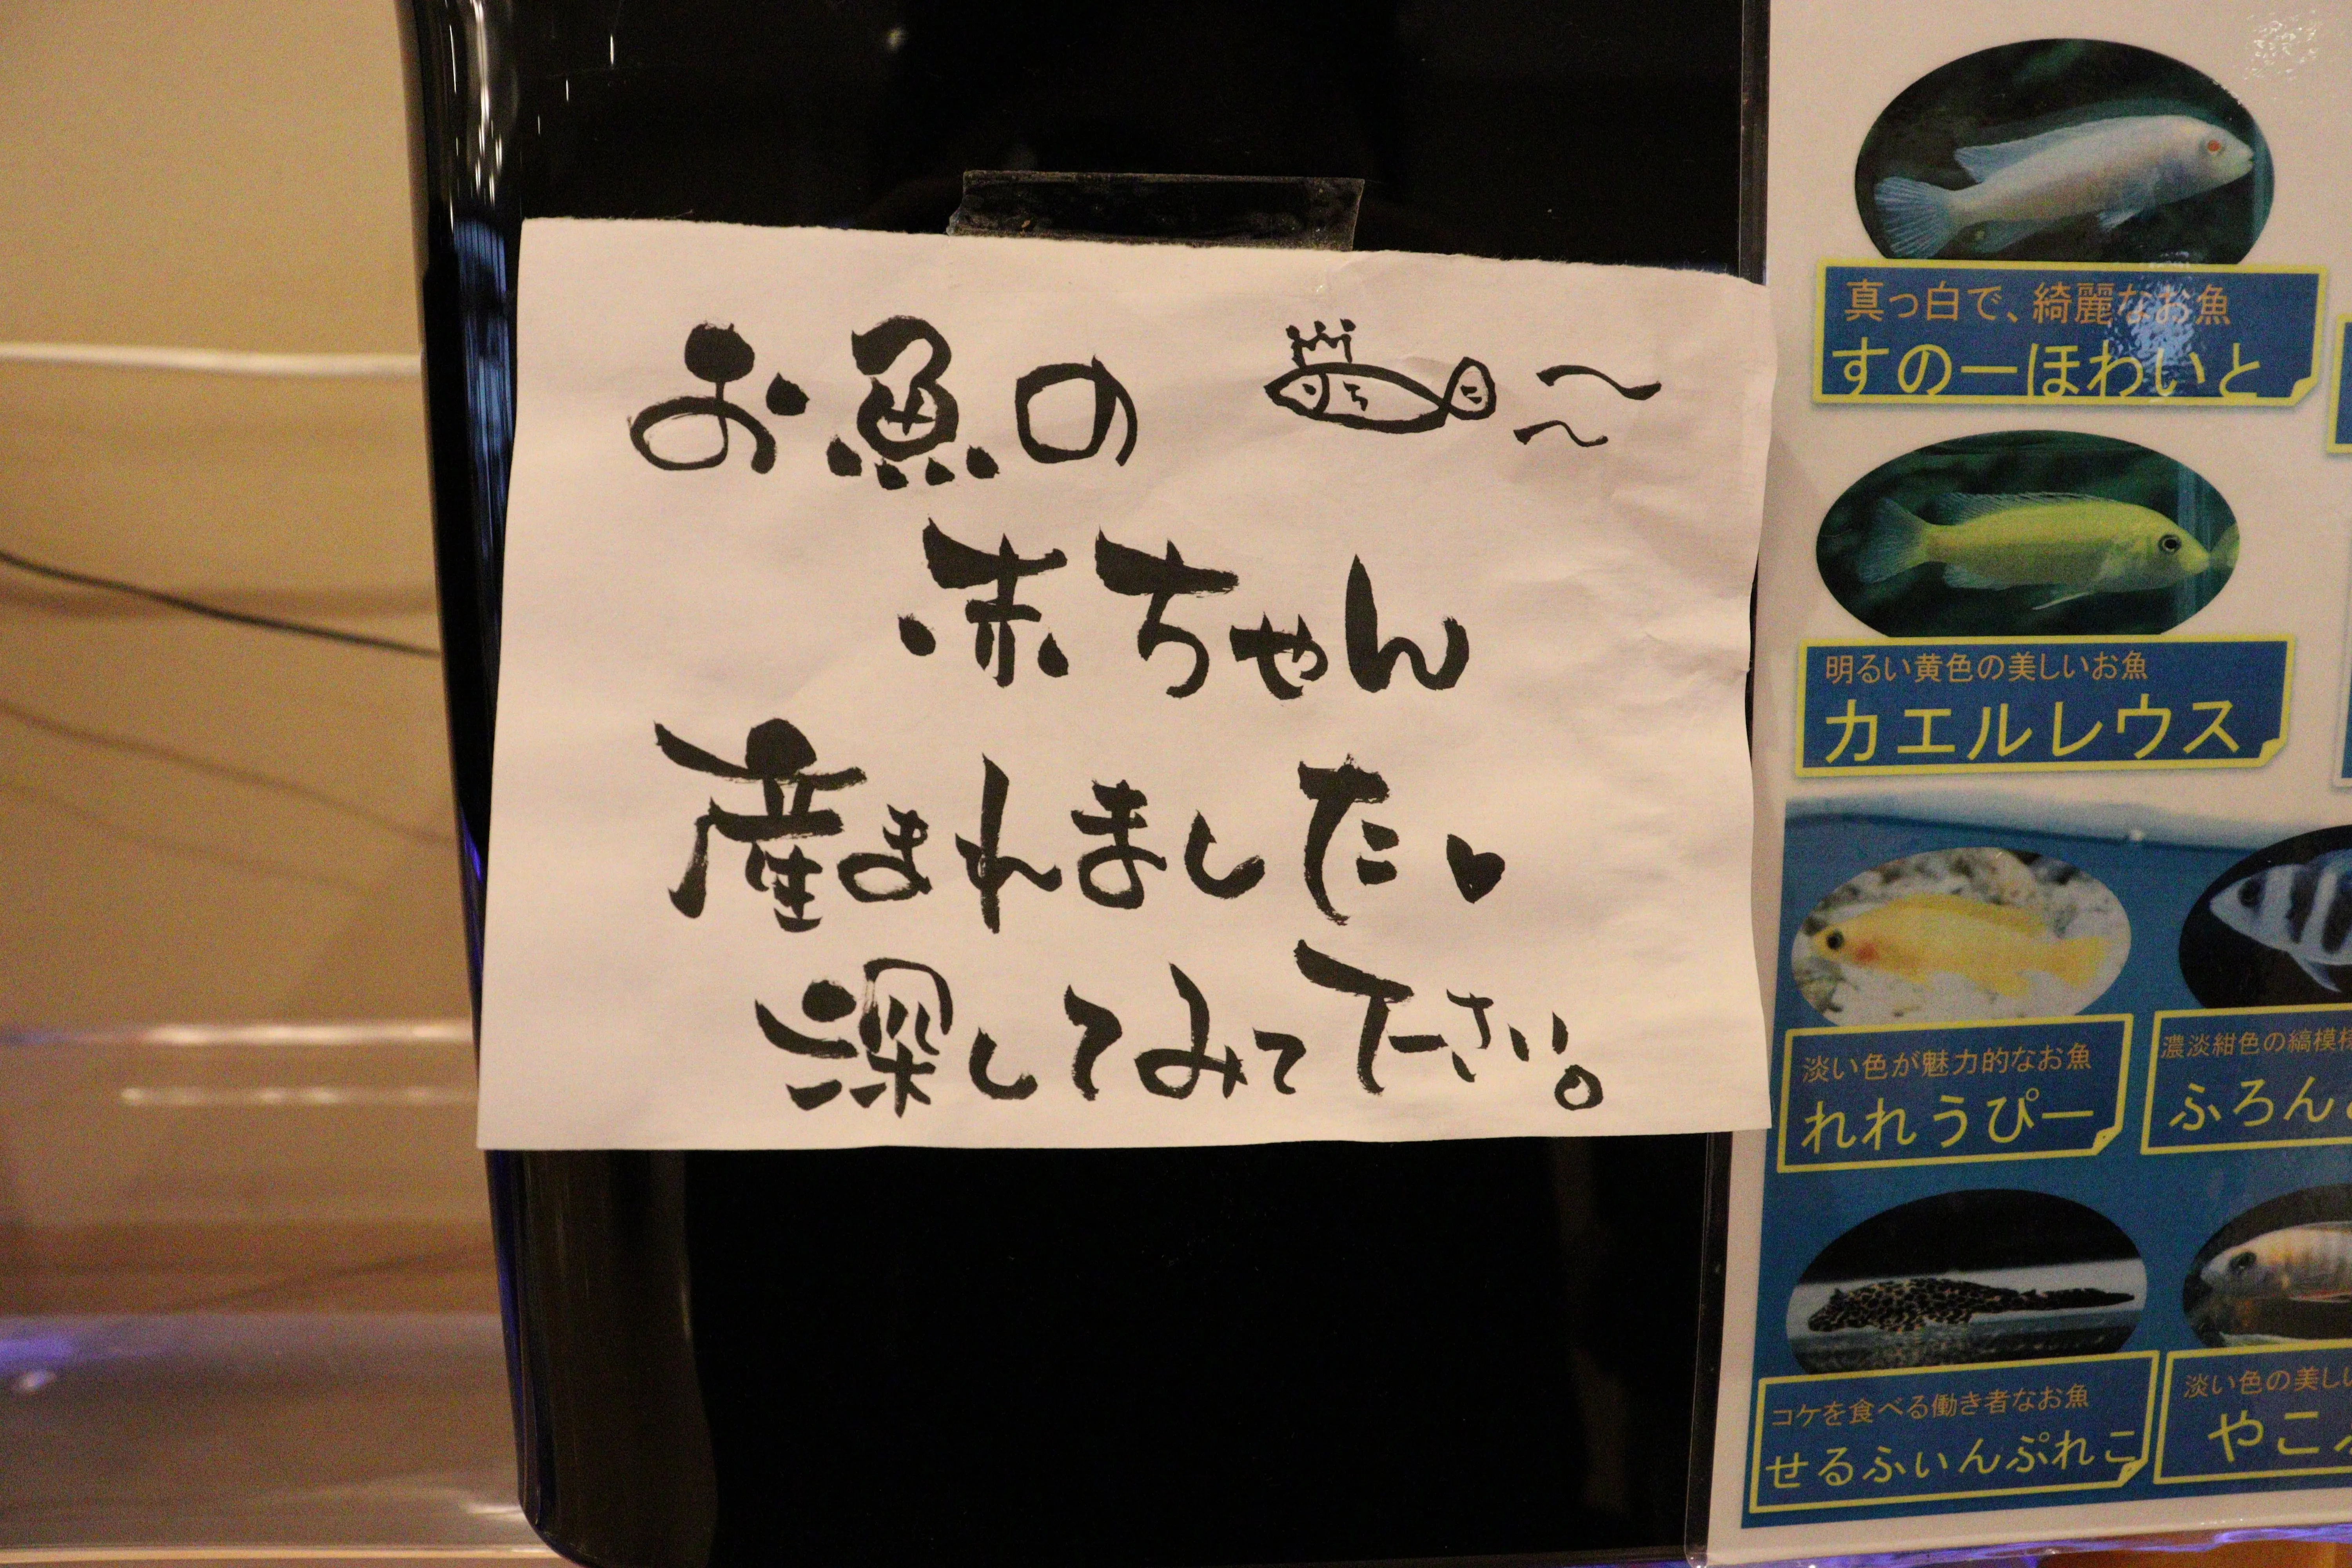 お魚の
赤ちゃん
産まれました♥
深してみて下さい。
真っ白で、綺麗なお魚
すのーほわいと
明るい黄色の美しいお魚
カエルレウス
淡い色が魅力的なお魚
れれうぴー
濃淡紺色の縞模
ふろん
コケを食べる働き者なお魚
せるふぃんぷれこ
淡い色の美し
やこ